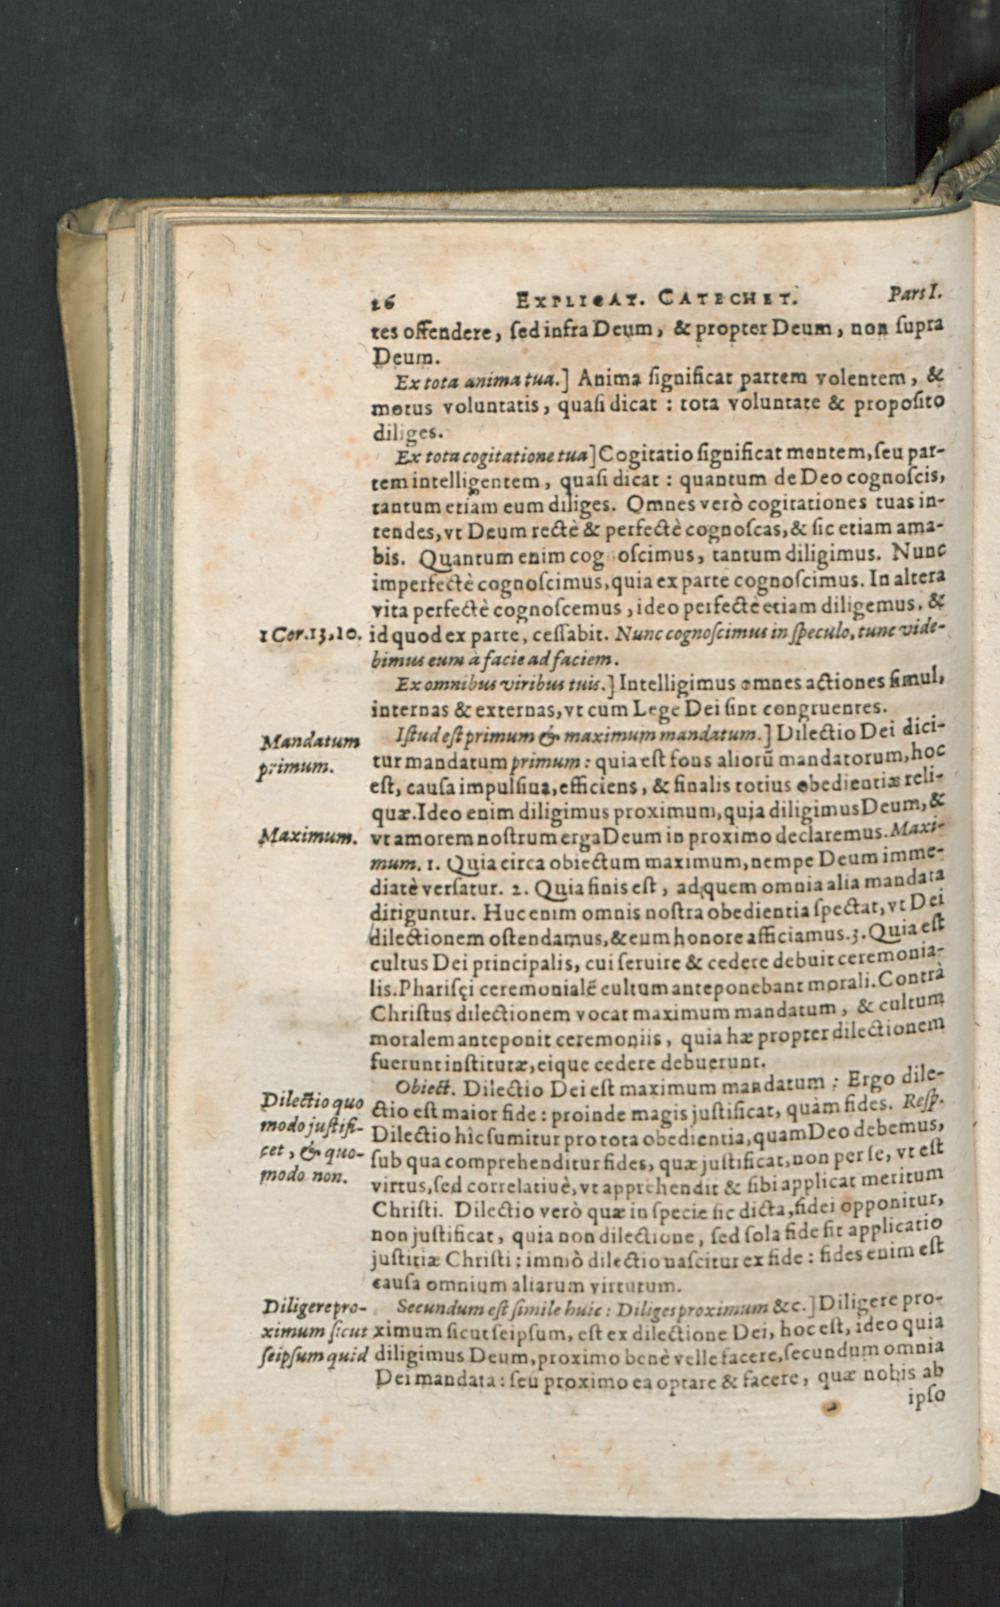 26 EXPLICAT. CATECHET. Pars I.
tes offendere, sed infra Deum, & propter Deum, non supra
Deum.
Ex tota anima tua.] Anima significat partem volentem, &
motus voluntatis, quasi dicat : tota voluntate & proposito
diliges.
Ex tota cogitatione tua] Cogitatio significat mentem, seu par-
tem intelligentem, quasi dicat : quantum de Deo cognoscis,
tantum etiam eum diliges. Omnes verò cogitationes tuas in-
tendes, vt Deum rectè & perfectè cognoscas, & sic etiam ama-
bis. Quantum enim cog oscimus, tantum diligimus. Nunc
imperfectè cognoscimus, quia ex parte cognoscimus. In altera
vita perfectè cognoscemus, ideo perfectè etiam diligemus, &
1 Cor. 13, 10. id quod ex parte, cessabit. Nunc cognoscimus in speculo, tunc vide-
bimus eum à facie ad faciem.
Ex omnibus viribus tuis.] Intelligimus omnes actiones simul,
internas & externas, vt cum Lege Dei sint congruentes.
Mandatum Istud est primum & maximum mandatum.] Dilectio Dei dici-
primum. tur mandatum primum : quia est fons alioru̅ mandatorum, hoc
est, causa impulsiua, efficiens, & finalis totius obedientiæ reli-
quæ. Ideo enim diligimus proximum, quia diligimus Deum, &
Maximum. vt amorem nostrum erga Deum in proximo declaremus. Maxi-
mum. 1. Quia circa obiectum maximum, nempe Deum imme-
diatè versatur. 2. Quia finis est, ad quem omnia alia mandata
diriguntur. Huc enim omnis nostra obedientia spectat, vt Dei
dilectionem ostendamus, & eum honore afficiamus. 3. Quia est
cultus Dei principalis, cui seruire & cedere debuit ceremonia-
lis. Pharisęi ceremonialē cultum anteponebant morali. Contrà
Christus dilectionem vocat maximum mandatum, & cultum
moralem anteponit ceremoniis, quia hæ propter dilectionem
fuerunt institutæ, eique cedere debuerunt.
Obiect. Dilectio Dei est maximum mandatum : Ergo dile-
Dilectio quo ctio est maior fide : proinde magis justificat, quàm fides. Resp.
modo justifi- Dilectio hîc sumitur pro tota obedientia, quam Deo debemus,
cet, & quo- sub qua comprehenditur fides, quæ justificat, non per se, vt est
modo non. virtus, sed correlatiuè, vt apprehendit & sibi applicat meritum
Christi. Dilectio verò quæ in specie sic dicta, fidei opponitur,
non justificat, quia non dilectione, sed sola fide fit applicatio
justitiæ Christi : immò dilectio nascitur ex fide : fides enim est
causa omnium aliarum virtutum.
Diligere pro- Secundum est simile huic : Diliges proximum &c.] Diligere pro-
ximum sicut ximum sicut seipsum, est ex dilectione Dei, hoc est, ideo quia
seipsum quid diligimus Deum, proximo benè velle facere, secundum omnia
Dei mandata : seu proximo ea optare & facere, quæ nobis ab
ipso